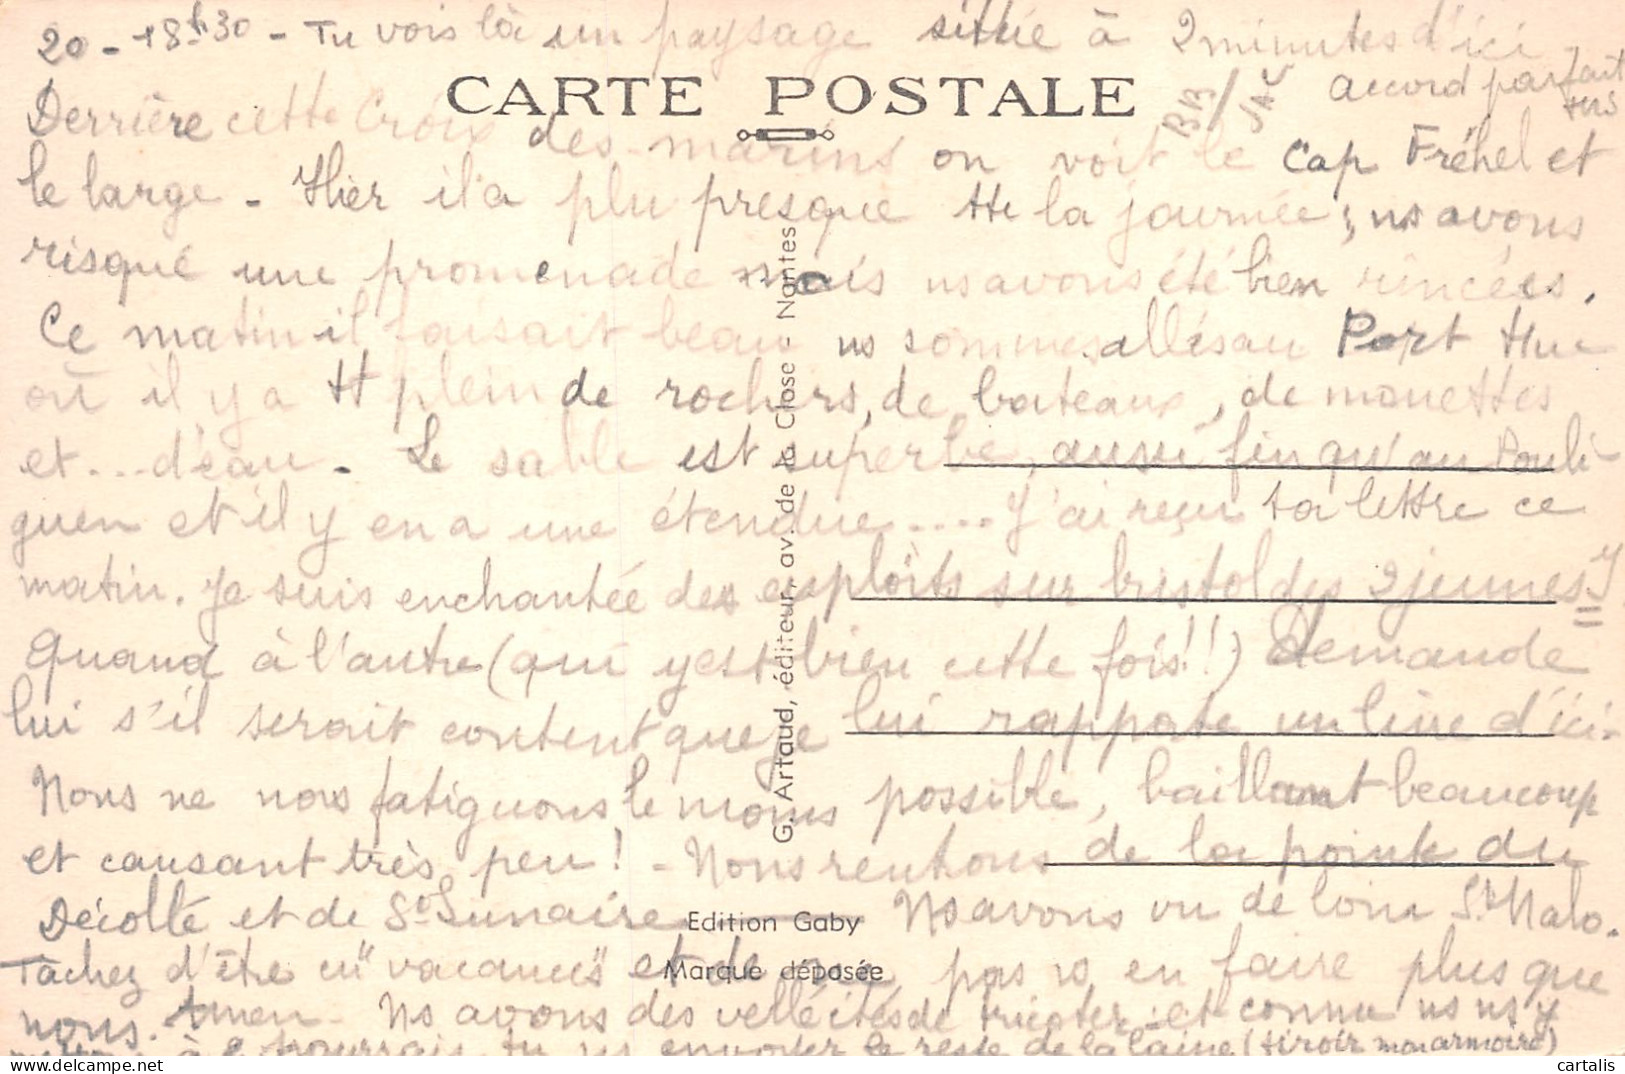 20 - 18h30 - Tu vois là un paysage situé à 2 minutes d'ici
CARTE POSTALE
accord parfait
Derrière cette Croix des marins on voit le Cap Fréhel et
le large - Hier il a plu presque tte la journée; ns avons
risqué une promenade mais ns avons été bien rincées.
Ce matin il faisait beau ns sommes allés au Port Hue
où il y a tt plein de rochers, de bateaux, de mouettes
et... d'eau. Le sable est superbe, aussi fin qu'au Pouli-
guen et il y en a une étendue.... J'ai reçu ta lettre ce
matin. Je suis enchantée des exploits sur bristol des 2 jeunes
Quand à l'autre (qui y est bien cette fois!!) demande
lui s'il serait content que je lui rapporte un livre d'ici.
Nous ne nous fatiguons le moins possible, baillant beaucoup
et causant très peu! - Nous rentrons de la pointe du
Décollé et de St Lunaire Ns avons vu de loin St Malo.
Tachez d'être en "vacances" et de ne pas vs en faire plus que
nous. Amen - Ns avons des velléités de tricoter et comme ns ns y
à 2 pourrais tu ns envoyer le reste de la laine (tiroir mon armoire)
G. Artaud, éditeur, av. de la Close - Nantes
Edition Gaby
Marque déposée
cartalis